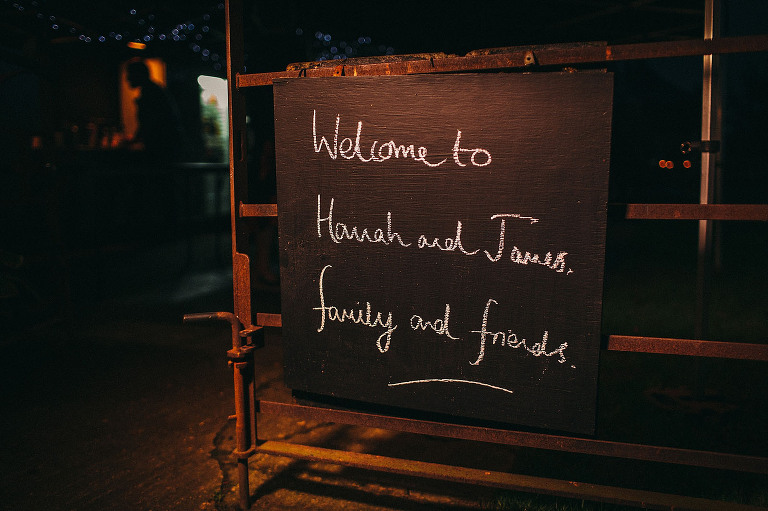 Welcome to
Hannah and James.
family and friends.